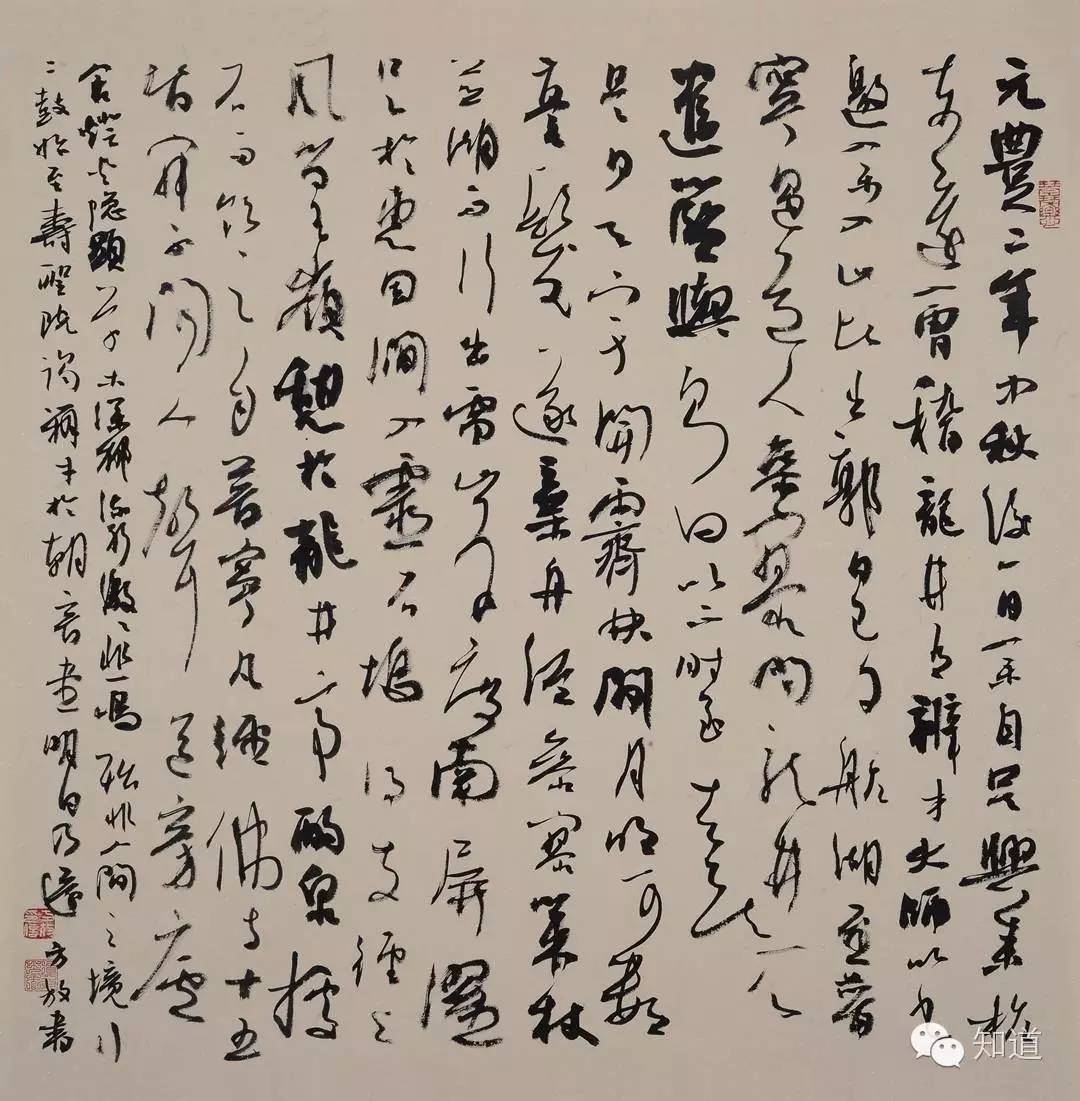 元豐二年中秋後一日余自吳興來杭
東還會稽龍井有辯才大師以書
邀余入山比出郭日已夕航湖至普
寧遇道人參寥問龍井所
遣籃輿則曰以不時至去矣
是夕天宇開霽林間月明可數
毫髮遂棄舟從參寥策杖
並湖而行出雷峰度南屏濯
足於惠因澗入靈石塢得支徑上
風篁嶺憩於龍井亭酌泉據
石而飲之自普寧凡經佛寺十五
皆寂不聞人聲道旁廬
舍燈火隱顯草木深鬱流水激〻悲鳴殆非人間之境行
二鼓始至壽聖院謁辯才於朝音堂明日乃還 方放書
知道